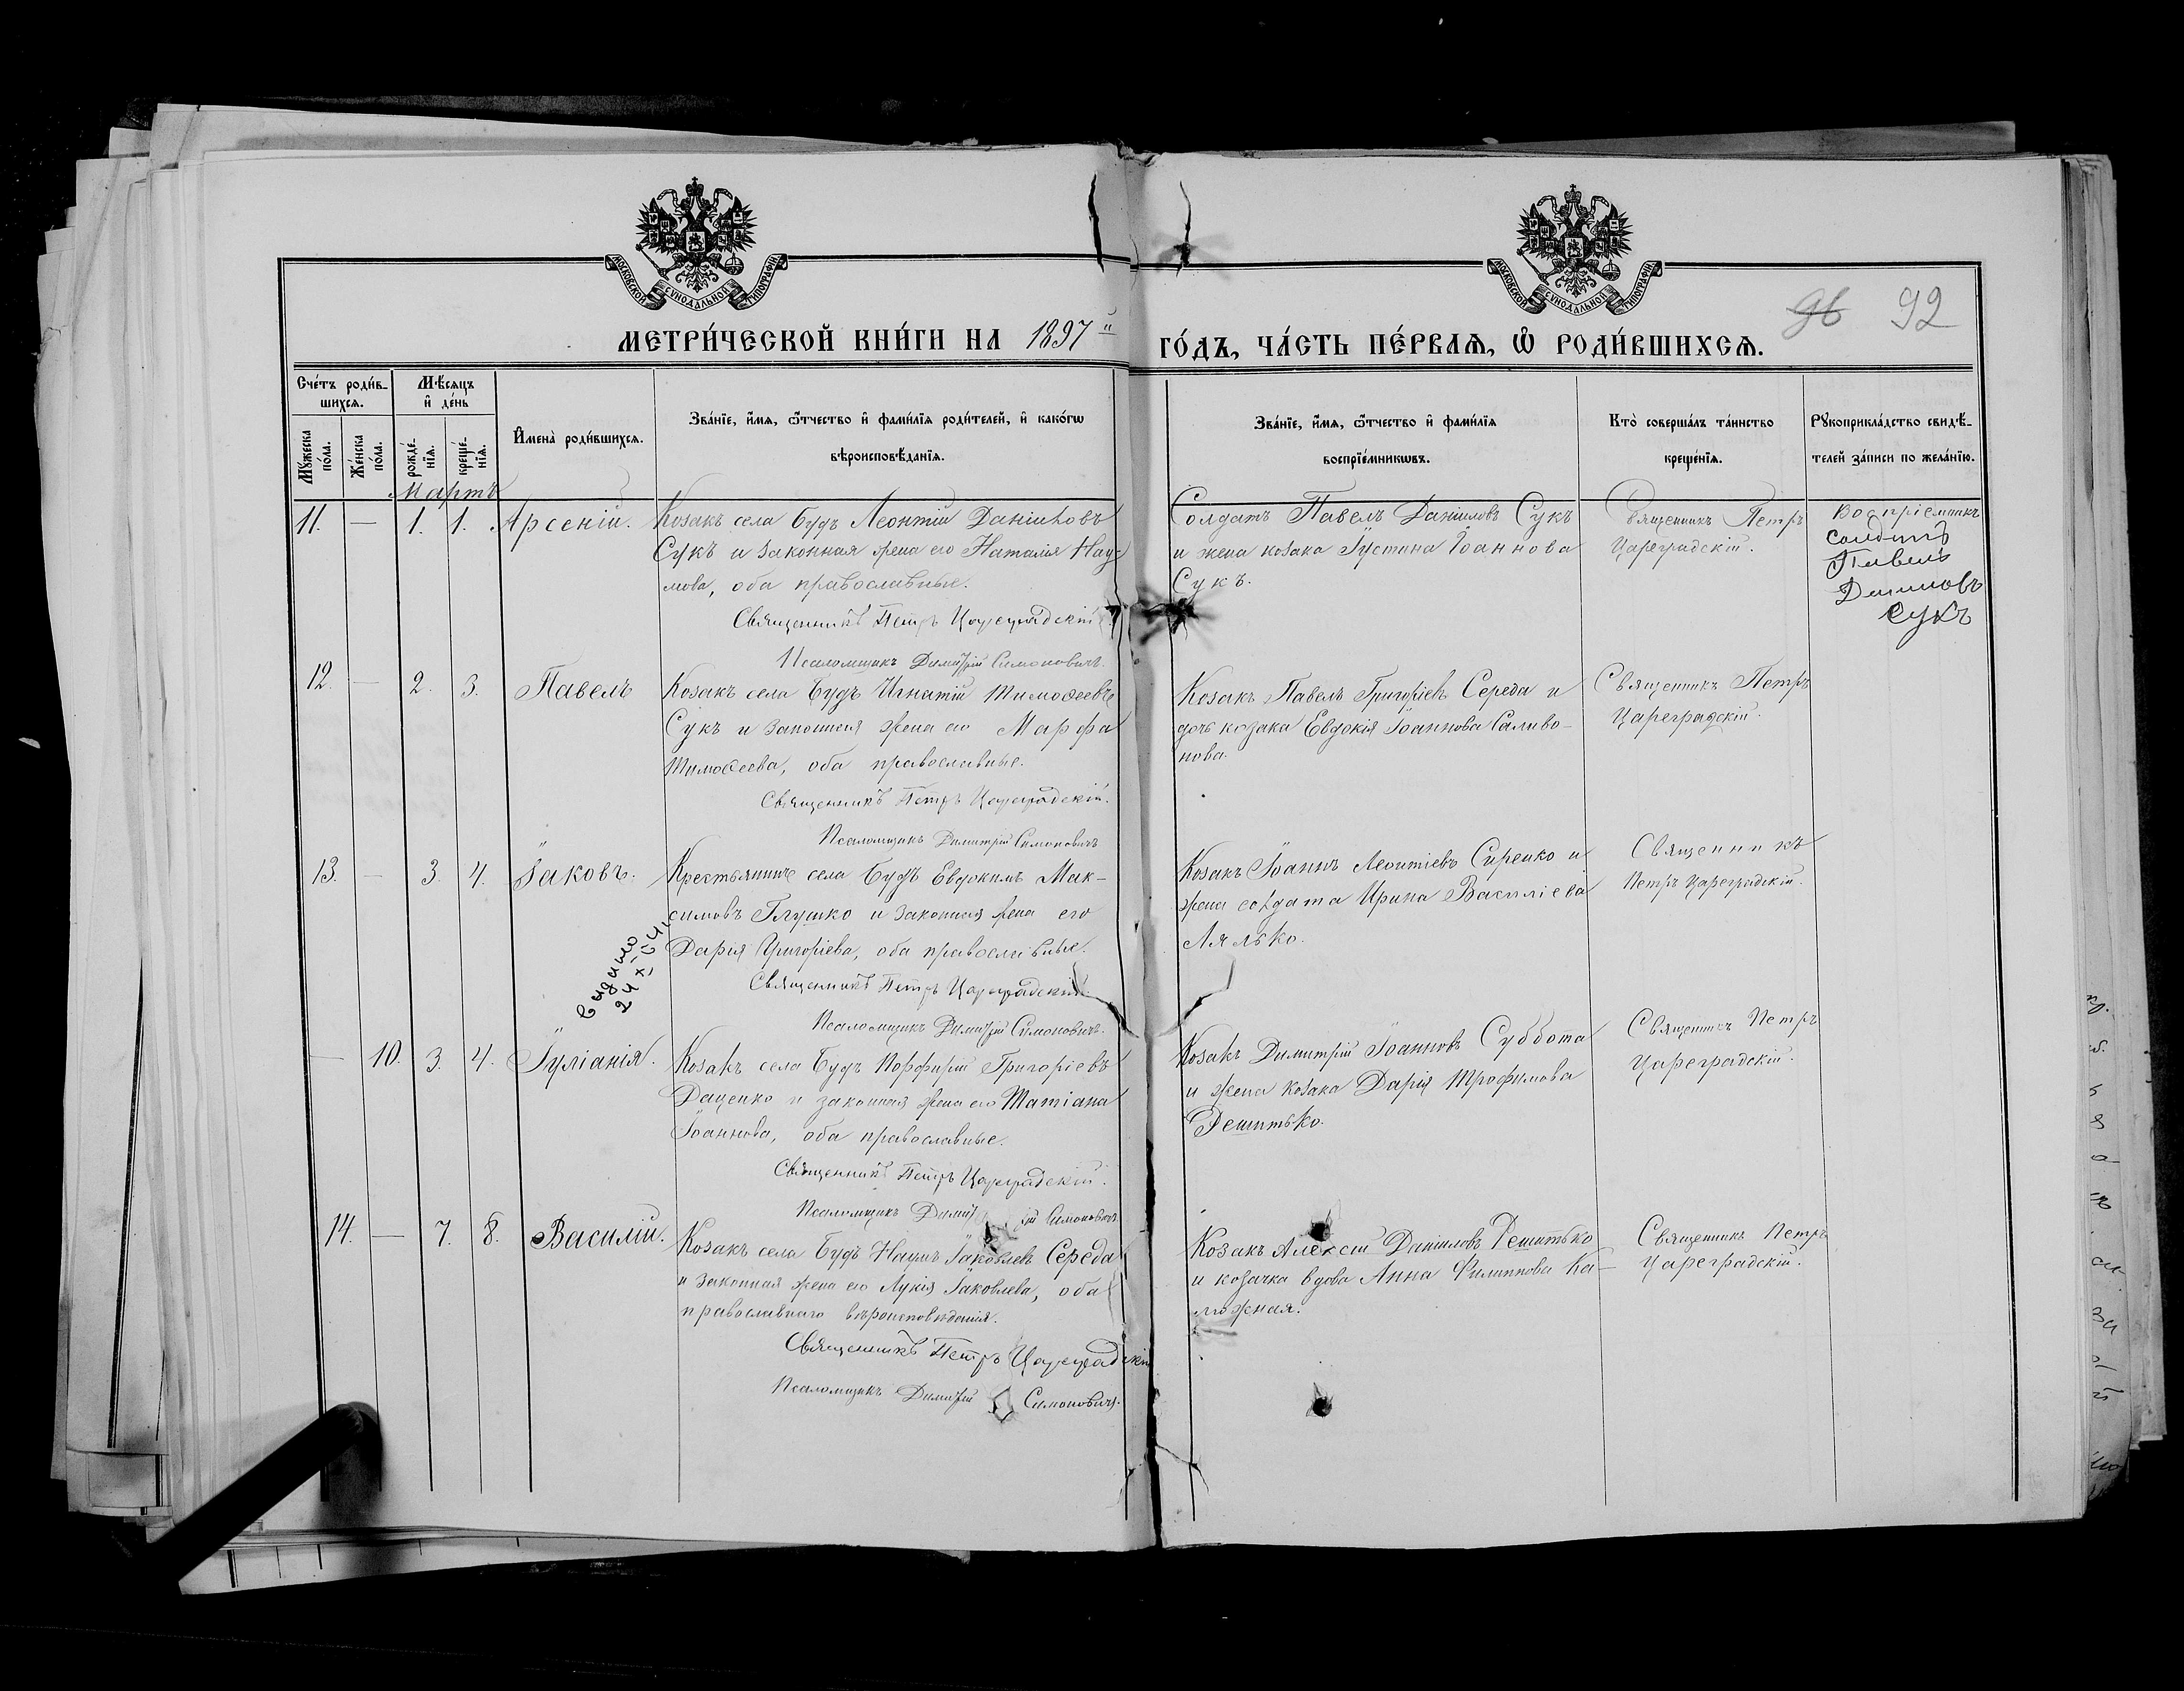 МОСКОВСКОЙ СѴНОДАЛЬНОЙ ТИПОГРАФІИ
МОСКОВСКОЙ СѴНОДАЛЬНОЙ ТИПОГРАФІИ
96 92
МЕТРИ́ЧЕСКОЙ КНИ́ГИ НА 1897й ГО́ДЪ, ЧА́СТЬ ПЕ́РВАѦ, Ѡ РОДИ́ВШИХСѦ.
Сче́тъ роди́в-
шихсѧ.
Мꙋ́жеска по́ла.
Же́нска по́ла.
Мѣ́сѧцъ
и҆ де́нь
рожде́-
нїѧ.
креще́-
нїѧ.
И҆мена̀ роди́вшихсѧ.
Зва́нїе, и҆́мѧ, ѻ҆́тчество и҆ фами́лїѧ роди́телей, и҆ како́гѡ
вѣроисповѣ́данїѧ.
Зва́нїе, и҆́мѧ, ѻ҆́тчество и҆ фами́лїѧ
воспрїе́мникѡвъ.
Кто̀ соверша́лъ та́инство
креще́нїѧ.
Рꙋкоприкла́дство свидѣ́-
телей за́писи по жела́нїю.
Мартъ
11. — 1. 1. Арсеній.
Козакъ села Будъ Леонтій Даніиловъ
Сукъ и законная жена его Наталія Нау-
мова, оба православные.
Священникъ Петръ Цареградскій.
Псаломщикъ Димитрій Симоновичъ.
Солдатъ Павелъ Даніиловъ Сукъ
и жена козака Іустина Іоаннова
Сукъ.
Священникъ Петръ
Цареградскій.
Воспріемникъ
солдатъ
Павелъ
Даниловъ
Сукъ
12. — 2. 3. Павелъ
Козакъ села Будъ Игнатій Тимоѳеевъ
Сукъ и законная жена его Марфа
Тимоѳеева, оба православные.
Священникъ Петръ Цареградскій.
Псаломщикъ Димитрій Симоновичъ
Козакъ Павелъ Григоріевъ Середа и
дочь козака Евдокія Іоаннова Саливо-
нова.
Священникъ Петръ
Цареградскій.
13. — 3. 4. Іаковъ.
Крестьянинъ села Будъ Евдокимъ Мак-
симовъ Глушко и законная жена его
Дарія Григоріева, оба православные.
Священникъ Петръ Цареградскій.
Псаломщикъ Димитрій Симоновичъ.
Козакъ Іоаннъ Леонтіевъ Сиренко и
жена солдата Ирина Василіева
Лялько.
Священникъ
Петръ Цареградскій.
— 10. 3. 4. Іуліанія.
Козакъ села Будъ Порфирій Григоріевъ
Даценко и законная жена его Татіана
Іоаннова, оба православные.
Священникъ Петръ Цареградскій.
Псаломщикъ Димитрій Симоновичъ
Козакъ Димитрій Іоанновъ Суббота
и жена козака Дарія Трофимова
Решитько.
Священникъ Петръ
Цареградскій.
14. — 7. 8. Василій.
Козакъ села Будъ Наумъ Іаковлевъ Середа
и законная жена его Лукія Іаковлева, оба
православнаго вѣроисповѣданія.
Священникъ Петръ Цареградскій
Псаломщикъ Димитрій Симоновичъ.
Козакъ Алексій Даніиловъ Решитько
и козачка вдова Анна Филиппова Ка-
мюжная.
Священникъ Петръ
Цареградскій.